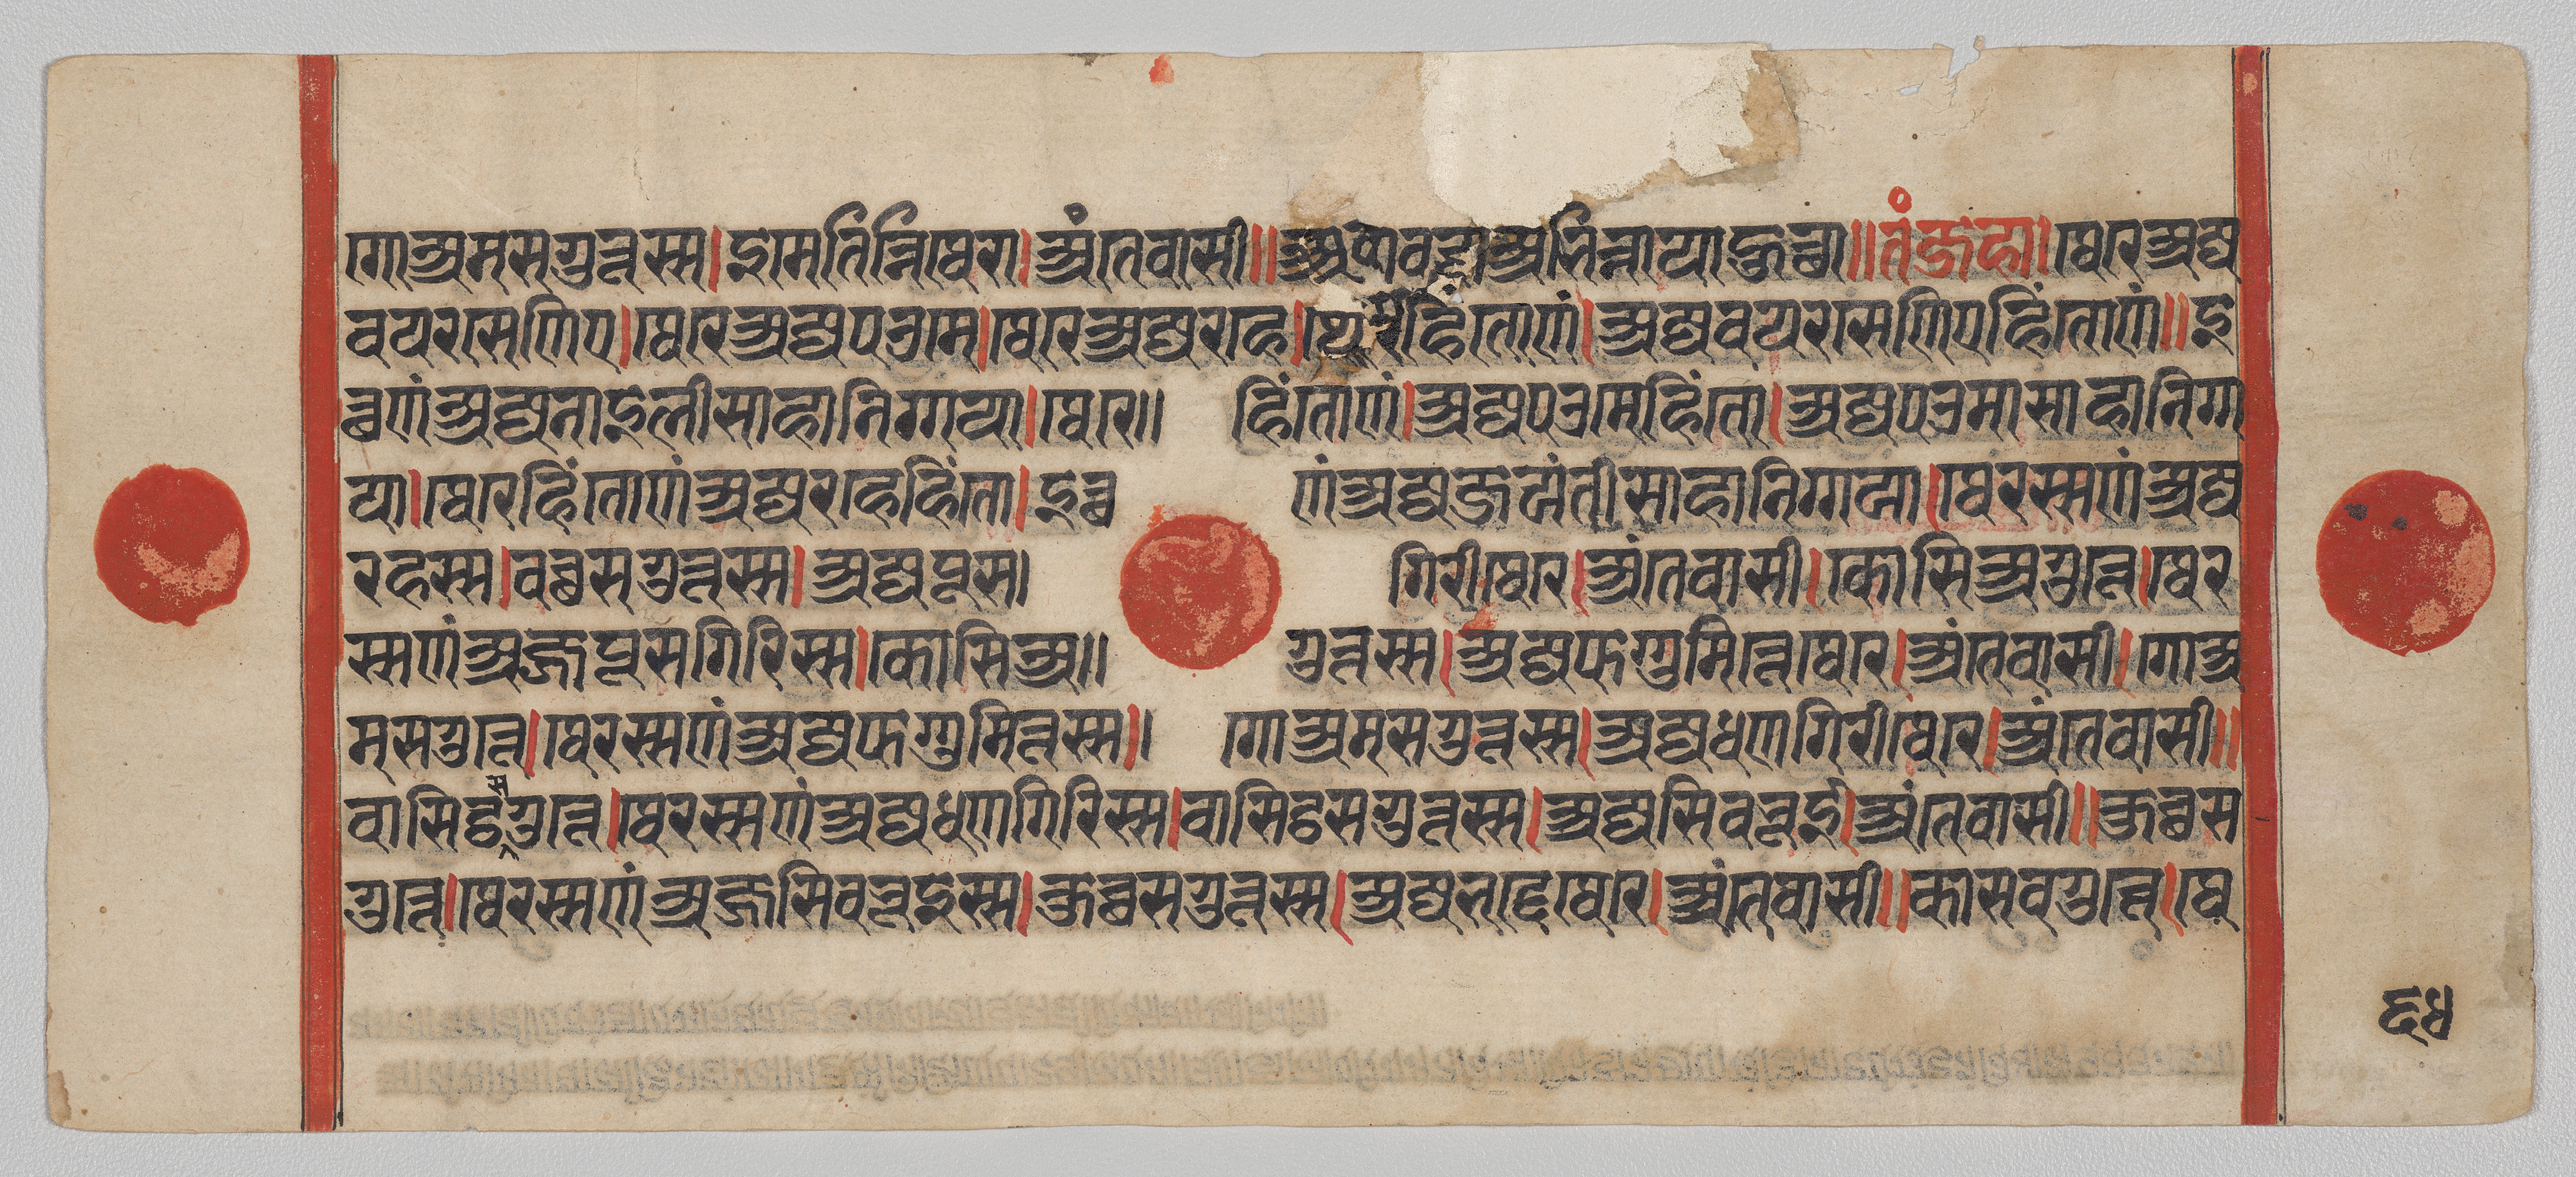 गोअमसगुत्तस्स। इमे तिन्नि थेरा। अंतेवासी॥ अहावच्चा अभिन्नाया हुत्था॥ तं जहा। थेरे अज्ज
वयरसेणिए। थेरे अज्जपउमे। थेरे अज्जरहे। थेरेहिंतो णं। अज्जवयरसेणिएहिंतो णं॥ इ
त्थणं अज्जनाइली साहा निग्गया। थेरे॥ हिंतो णं। अज्जपउमेहिंतो। अज्जपउमा साहा निग्ग
या। थेरेहिंतो णं अज्जरहेहिंतो। इत्थ णं अज्जजयंती साहा निग्गया। थेरस्स णं अज्ज
रहस्स। वच्छसगुत्तस्स। अज्जपूस। गिरी थेरे। अंतेवासी। कोसिअगुत्ते। थेर
स्स णं अज्जपूसगिरिस्स। कोसिअ॥ गुत्तस्स। अज्जफग्गुमित्ते थेरे। अंतेवासी। गोअ
मसगुत्ते। थेरस्स णं अज्जफग्गुमित्तस्स॥ गोअमसगुत्तस्स। अज्जधणगिरी थेरे। अंतेवासी॥
वासिट्ठसगुत्ते। थेरस्स णं अज्जधणगिरिस्स। वासिट्ठसगुत्तस्स। अज्जसिवभूई। अंतेवासी॥ कुच्छस
गुत्ते। थेरस्स णं अज्जसिवभूइस्स। कुच्छसगुत्तस्स। अज्जभद्दे थेरे। अंतेवासी॥ कासवगुत्ते। थे
६५